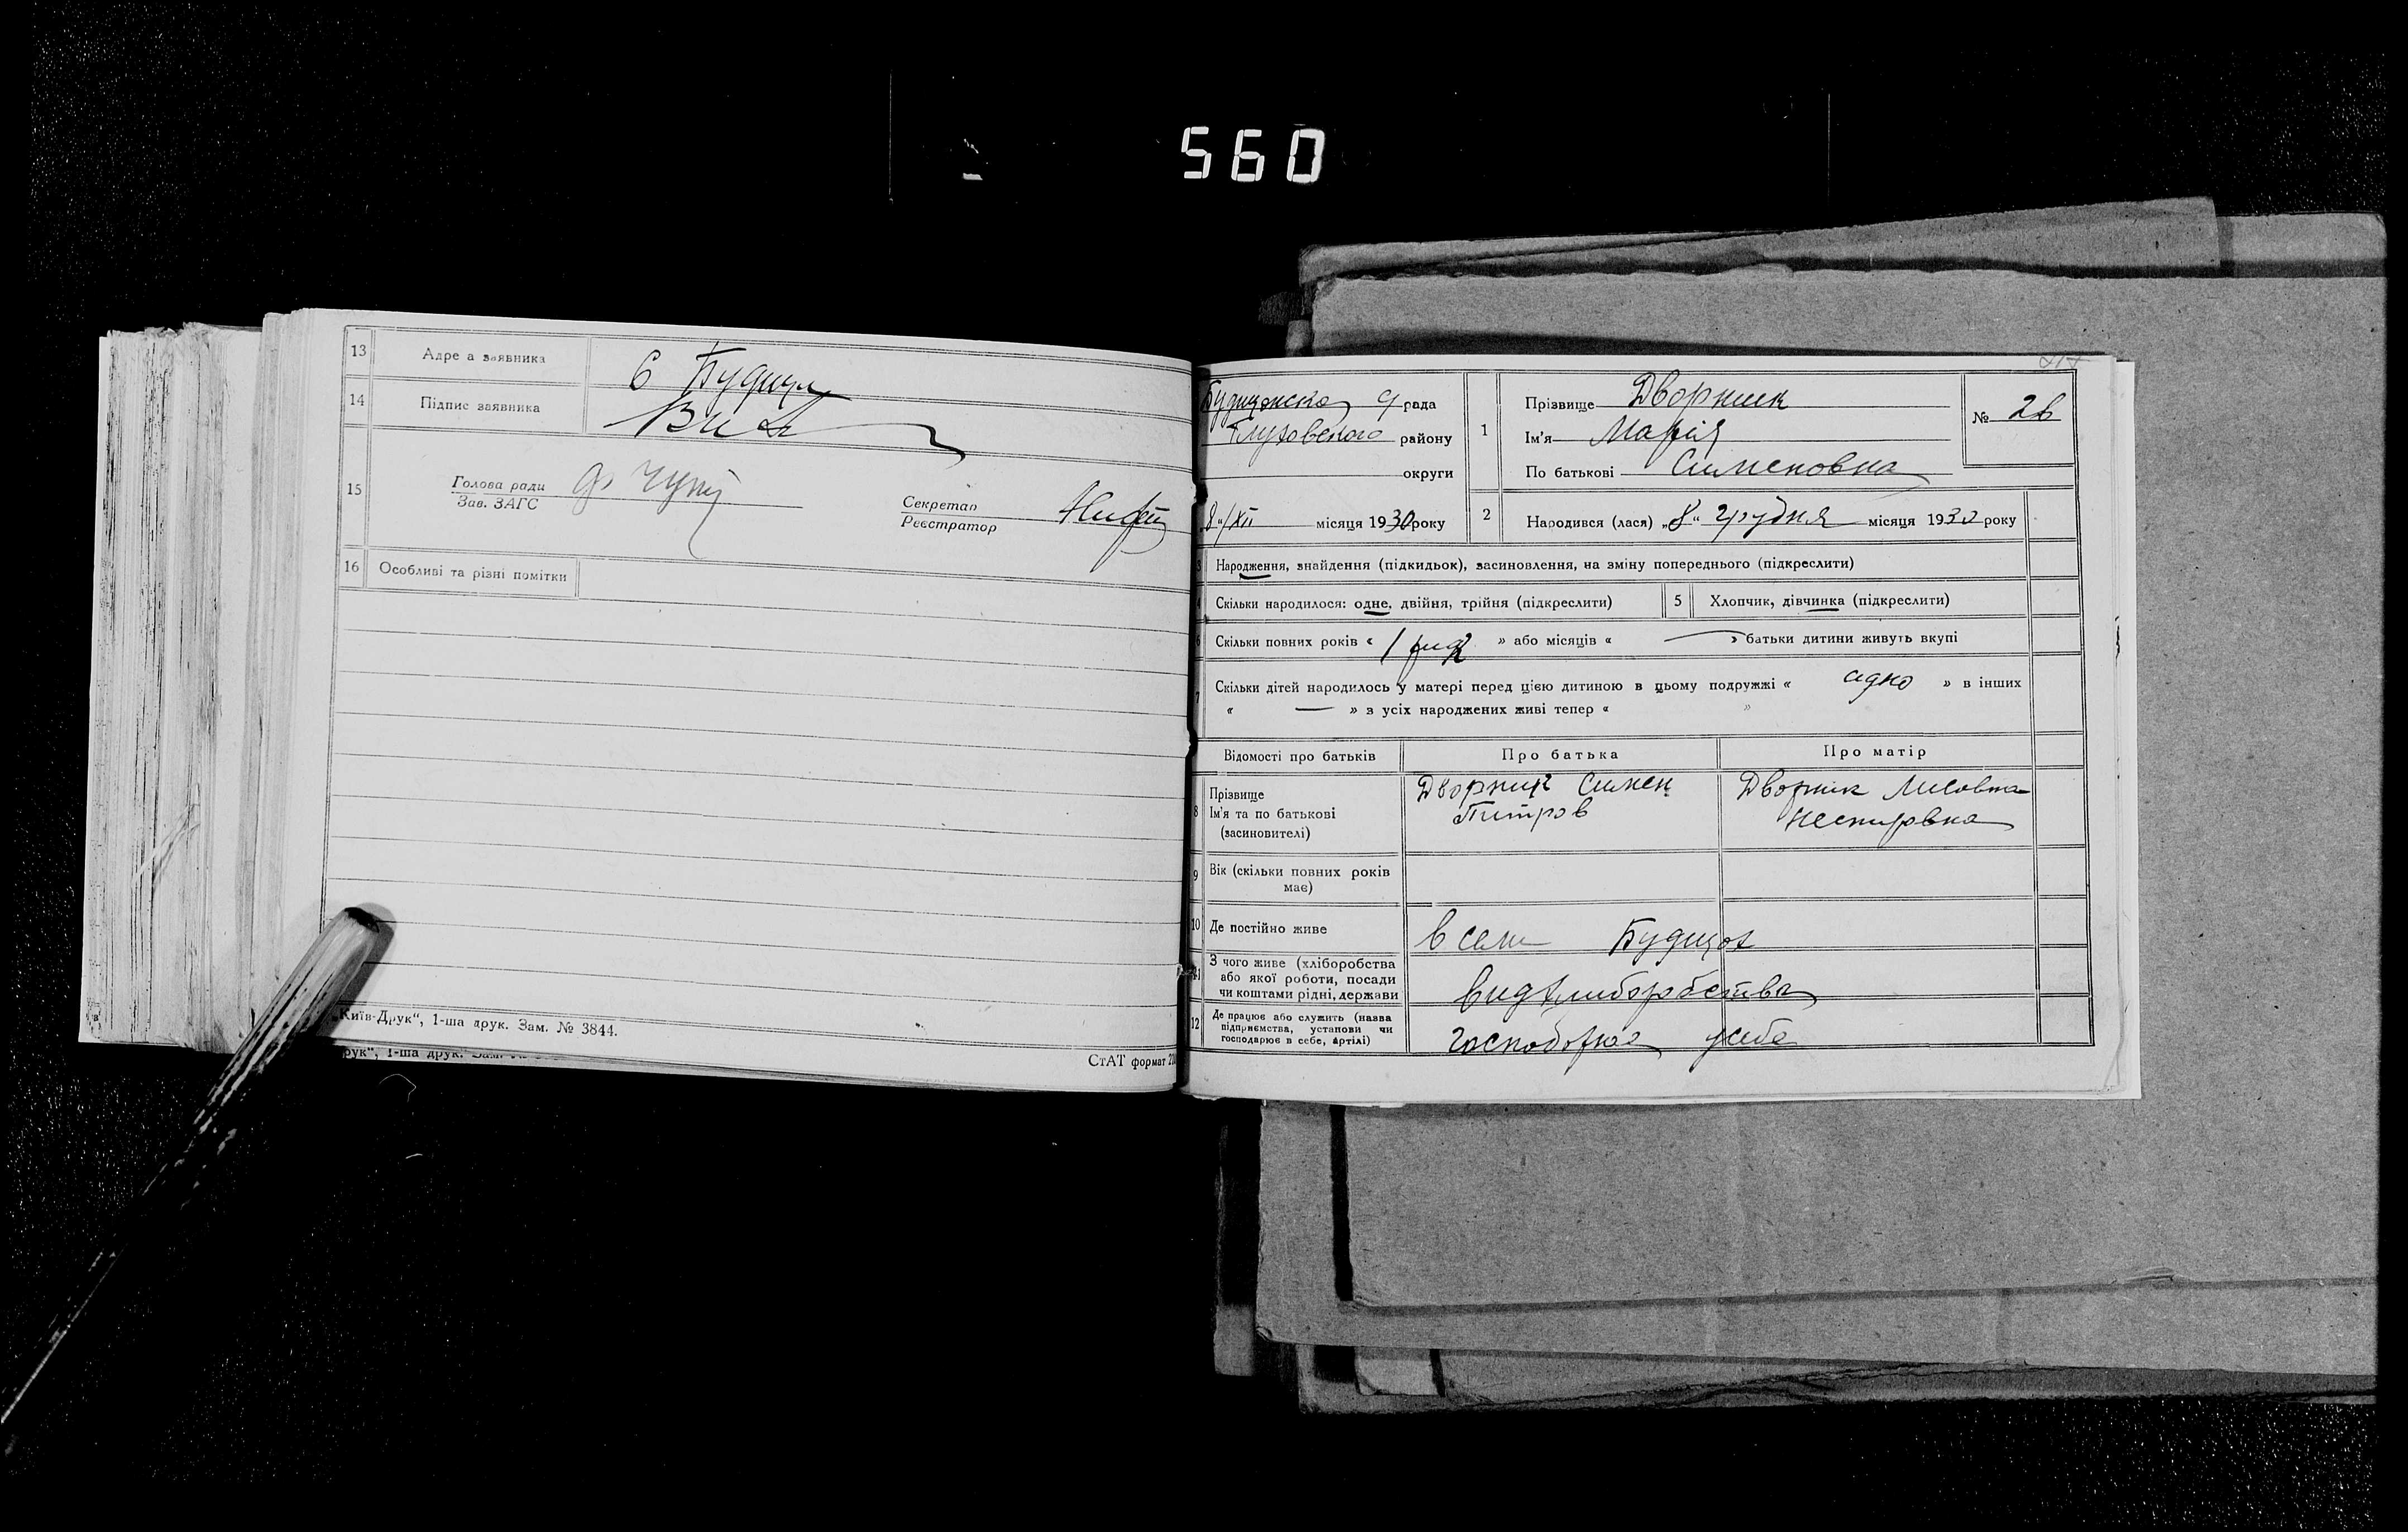 560
13 Адре а заявника С Будищя
14 Підпис заявника
15 Голова ради
Зав. ЗАГС
Секретар
Реєстратор
16 Особливі та різні помітки
„Київ-Друк“, 1-ша друк. Зам. № 3844.
рук“, 1-ша друк. Зам.
СтАТ формат
рада
Глуховського району
округи
„8“/XII місяця 1930 року
1 Прізвище Дворник
Ім'я Марія
По батькові Сименовна
№ 26
2 Народився (лася) „8“ грудня місяця 1930 року
Народження, знайдення (підкидьок), васиновлення, на зміну попереднього (підкреслити)
Скільки народилося: одне, двійня, трійня (підкреслити) 5 Хлопчик, дівчинка (підкреслити)
6 Скільки повних років « 1 » або місяців « — » батьки дитини живуть вкупі
7 Скільки дітей народилось у матері перед цією дитиною в цьому подружжі « адно » в інших
« — » з усіх народжених живі тепер « »
Відомості про батьків Про батька Про матір
8 Прізвище Ім'я та по батькові (васиновителі)
Дворник Симен Питров
Дворник
9 Вік (скільки повних років має)
10 Де постійно живе в сели Будищах
11 З чого живе (хліборобства або якої роботи, посади чи коштами рідні, держави
вид хлиборобства
12 Де працює або служить (назва підприємства, установи чи господарює в себе, артілі)
усебе